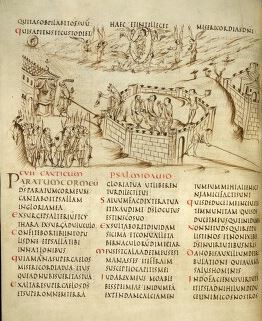 OPILABIT OS SUU
QUIS SAPIENS ET CUSTODIET
HAEC ET INTELLEGET
MISERICORDIAS DNI
CVII CANTICUM
PARATUM COR MEU
DS PARATUM COR MEUM
CANTABO ET PSALLAM
IN GLORIA MEA
EXSURGE PSALTERIU ET CY
THARA EXSURGA DILUCULO
CONFITEBOR TIBI IN POPU
LIS DNE ET PSALLA TIBI
IN NATIONIBUS
QUIA MAGNA SUPER CAELOS
MISERICORDIA TUA ET US
QUE AD NUBES VERITAS TUA
EXALTARE SUPER CAELOS DS
ET SUPER OMNEM TERRA
PSALMI DAVID
GLORIA TUA UT LIBEREN
TUR DILECTI TUI
SALVUM FAC DEXTERA TUA
ET EXAUDI ME DS LOCUTUS
EST IN SCO SUO
EXSULTABO ET DIVIDAM
SICIMA ET CONVALLE TA
BERNACULORU DIMETIAR
MEUS EST GALAAD ET MEUS EST
MANASSES ET EFFRAIM
SUSCEPTIO CAPITIS MEI
IUDA REX MEUS MOAB LE
BES SPEI MEAE IN IDUMEA
EXTENDAM CALCIAMEN
TUM MEUM MIHI ALIENIGE
NAE AMICI FACTI SUNT
QUIS DEDUCET ME IN CIVITA
TEM MUNITAM QUIS DE
DUCET ME USQUE IN IDUMEA
NONNE TU DS QUI REPPU
LISTI NOS ET NON EXIBIS
DS IN VIRTUTIBUS NRIS
DA NOBIS AUXILIUM DE TRI
BULATIONE QUIA VANA
SALUS HOMINIS
IN DO FACIEMUS VIRTUTE
ET IPSE AD NIHILUM DEDU
CET INIMICOS NOSTROS